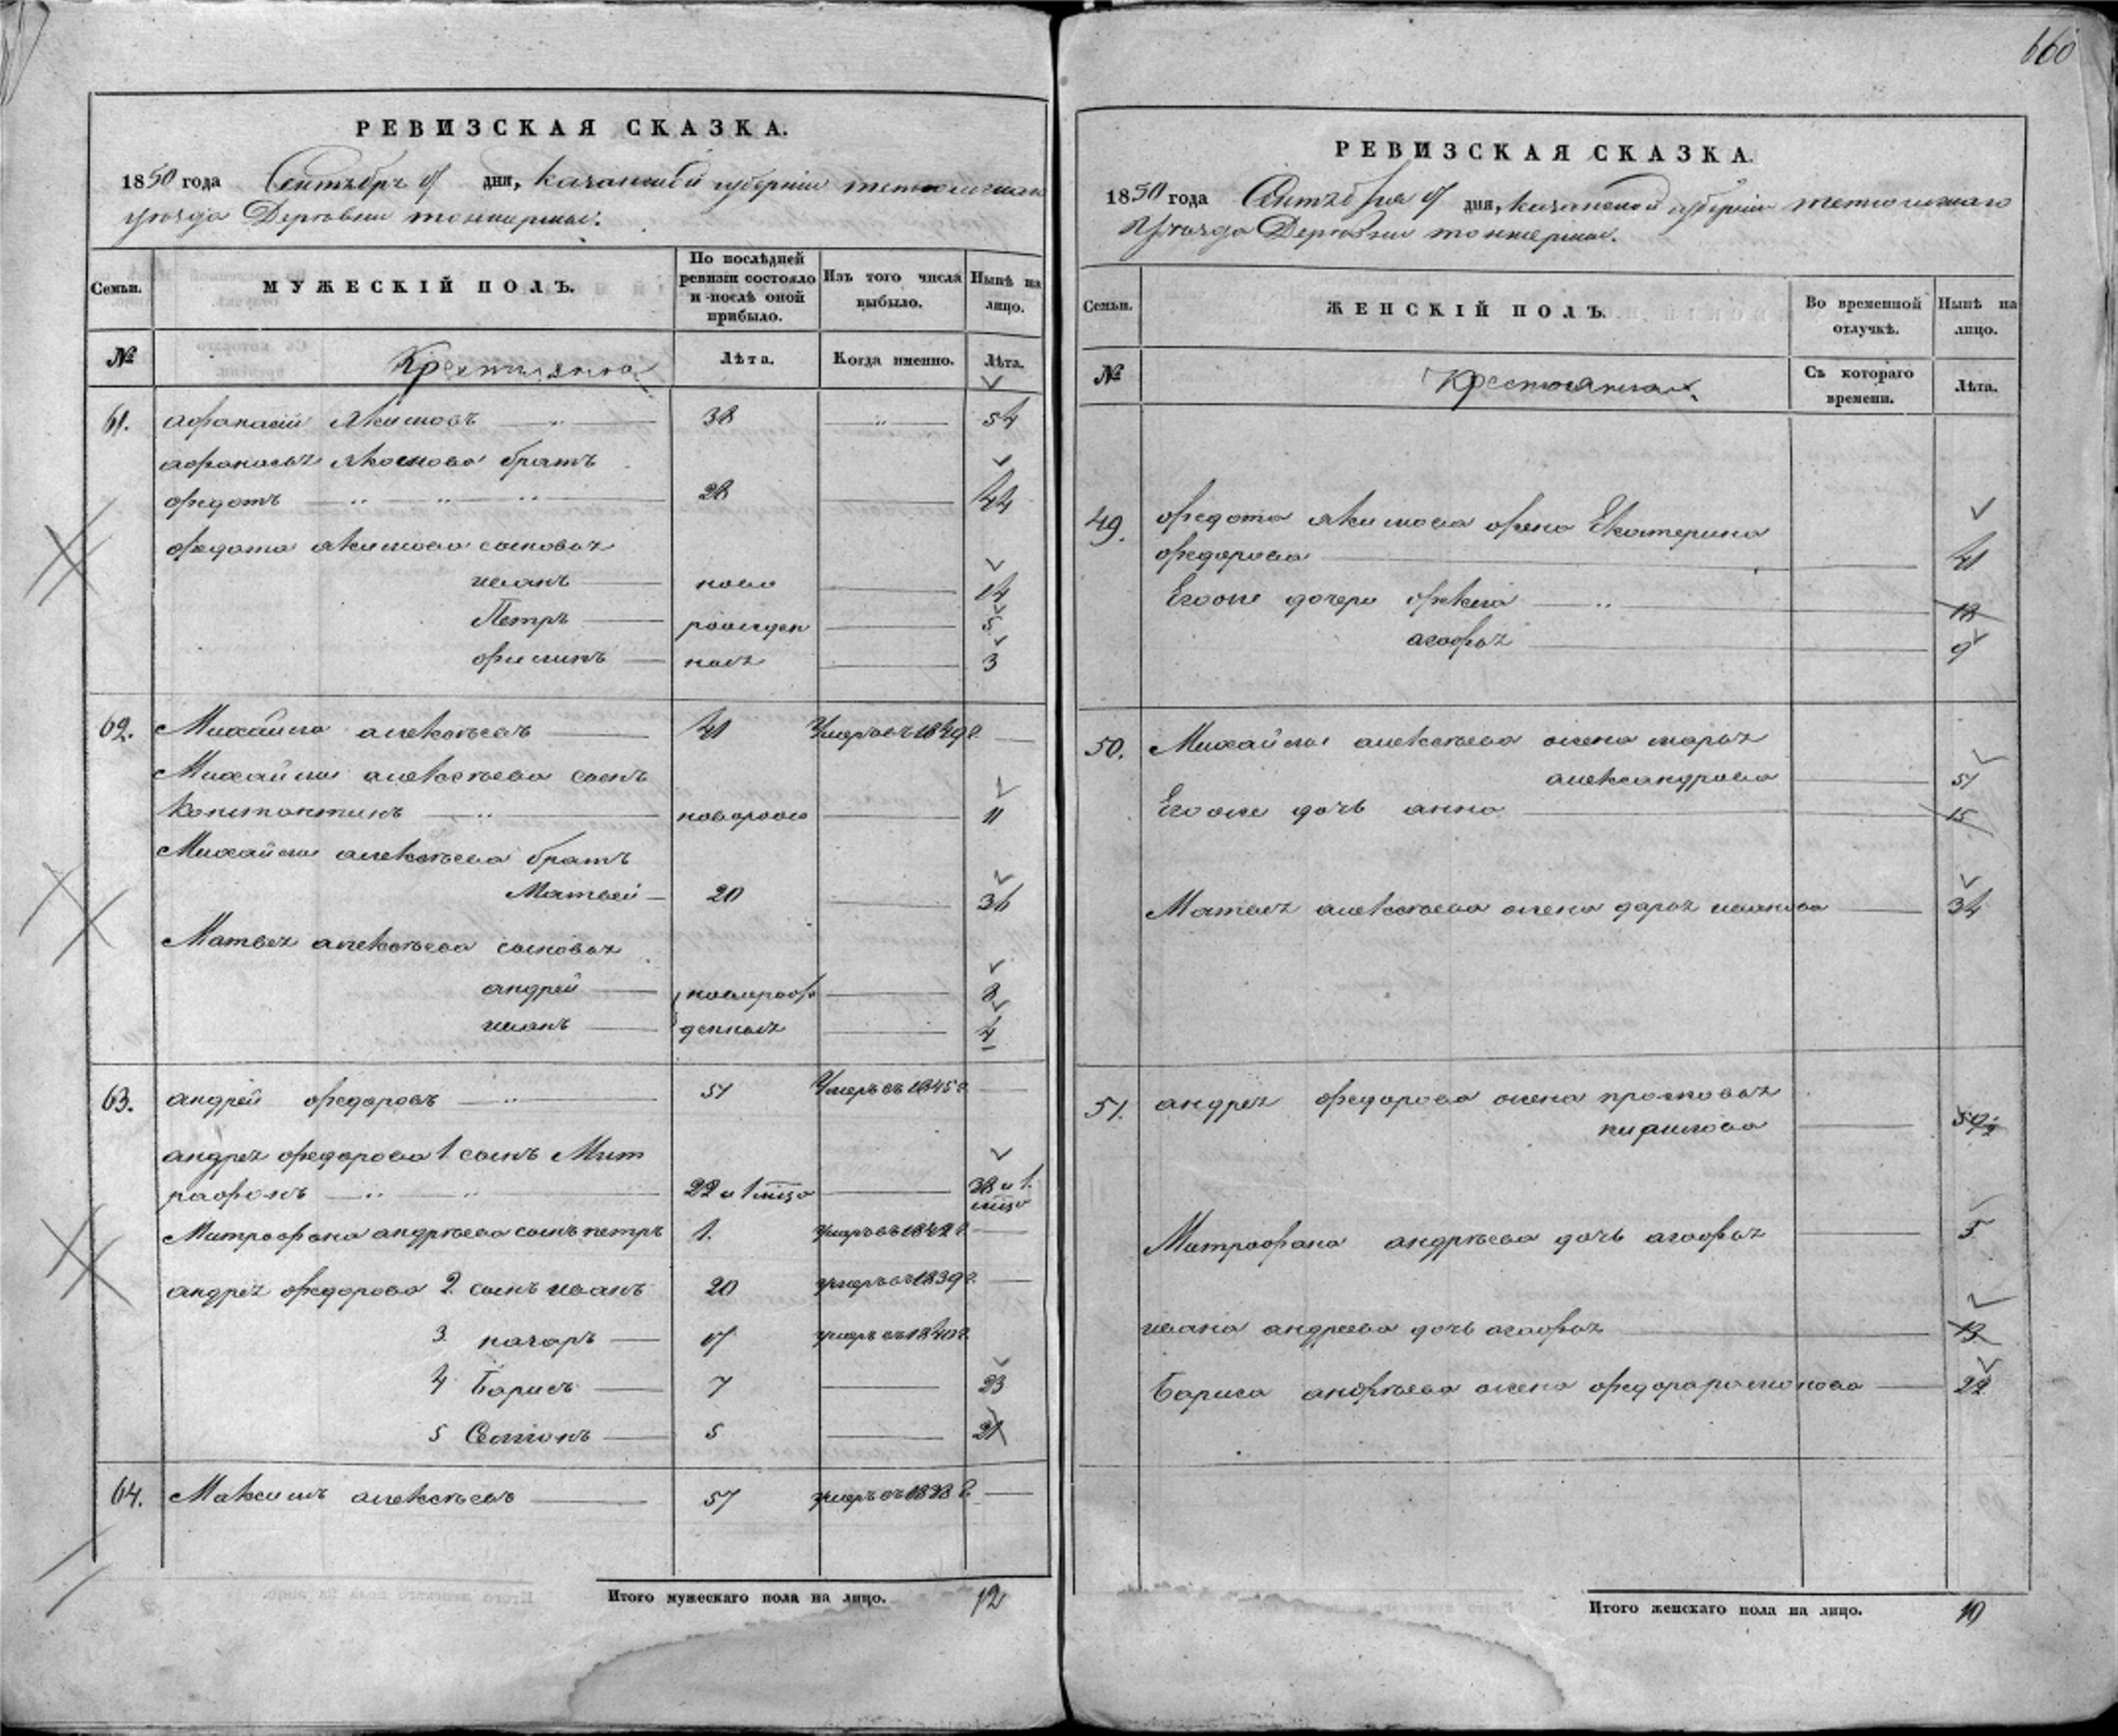 660
РЕВИЗСКАЯ СКАЗКА.
1850 года Сентябрь 9 дня, казанской губернии тетюшскаго
уѣзда Деревни
МУЖЕСКІЙ ПОЛЪ.
Семьи.
По послѣдней ревизіи состояло и послѣ оной прибыло.
Изъ того числа выбыло.
Нынѣ на лицо.
№
Лѣта.
Когда именно.
Лѣта.
61. афанасій якимовъ 38 54
афанасья якимова братъ
федотъ 28 44
федота якимова сыновья
иванъ ново 14
Петръ рожден 5
филипъ ныя 3
62. Михайла алексѣевъ 41 Умеръ въ 1849 г
Михайлы алексѣева сынъ
константинъ новорож 11
Михайлы алексѣева братъ
Матвей 20 36
Матвея алексѣева сыновья
андрей новорож 8
иванъ денныя 4
63. андрей федоровъ 51 Умеръ въ 1845 г
андрея федорова 1 сынъ Мит
рафонъ 22 и 1 мца 38 и 1. мца
Митрофана андрѣева сынъ петръ 1. умеръ въ 1842 г
андрея федорова 2 сынъ иванъ 20 умеръ въ 1839 г
3 назаръ 17 умеръ въ 1840 г
4 Барисъ 7 23
5 Семионъ 5 21
64. Максимъ алексѣевъ 57 умеръ въ 1838 г
Итого мужескаго пола на лицо. 12
РЕВИЗСКАЯ СКАЗКА.
1850 года Сентября 9 дня, казанской губерніи тетюшскаго
Уѣзда Деревни
Семьи.
ЖЕНСКІЙ ПОЛЪ.
Во временной отлучкѣ.
Нынѣ на лицо.
№
Съ котораго времени.
Лѣта.
49. федота якимова жена Екатерина
федорова 41
Егоже дочери фекла 18
агафья 9
50. Михайлы алексѣева жена марья
александрова 51
Егоже дочь анна 15
Матвея алексѣева жена дарья иванова 34
51. андрея федорова жена прасковья
кирилова
Митрофана андрѣева дочь агафья 5
ивана андреева дочь агафья 13
Бариса андрѣева жена федора 22
Итого женскаго пола на лицо. 10